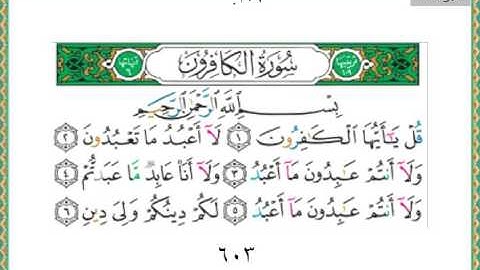 سُورَةُ الكَافِرُونَ
بِسْمِ اللَّهِ الرَّحْمَٰنِ الرَّحِيمِ
قُلْ يَٰٓأَيُّهَا الْكَٰفِرُونَ ١ لَآ أَعْبُدُ مَا تَعْبُدُونَ ٢
وَلَآ أَنتُمْ عَٰبِدُونَ مَآ أَعْبُدُ ٣ وَلَآ أَنَا۠ عَابِدٌ مَّا عَبَدتُّمْ ٤
وَلَآ أَنتُمْ عَٰبِدُونَ مَآ أَعْبُدُ ٥ لَكُمْ دِينُكُمْ وَلِيَ دِينِ ٦
٦٠٣